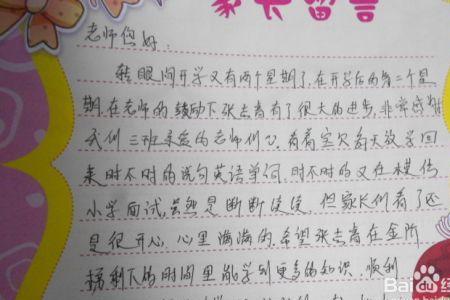 家长留言
老师您好:
转眼间开学又有两个星期了,在开学后的第二个星
期,在老师的鼓励下张志育有了很大的进步,非常感谢
我们三班亲爱的老师们了,看着宝欠每天放学回
来时不时的说句英语单词,时不时的又在模仿
小学面试,虽然是断断续续,但家长们看了还
是很开心,心里满满的,希望张志育在金所
揣剩下的时间里能学到更多的知识,顺利
Bai